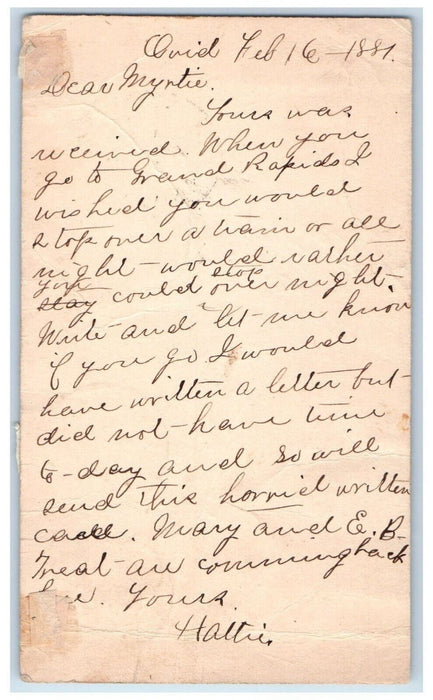 Ovid Feb 16 - 1881.
Dear Myrtie.
Yours was
received. When you
go to Grand Rapids I
wished you would
stop over a train or all
night - would rather
you stop
stay could over night.
Write and let me know
if you go I would
have written a letter but
did not have time
to-day and so will
send this horrid written
card. Mary and E. B.
Treat are comming back
Yours.
Hattie.